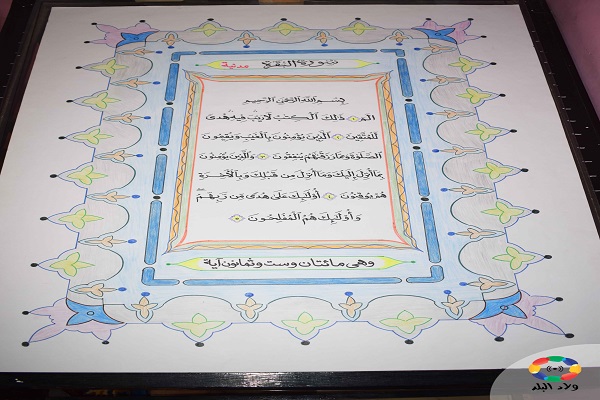 سورة البقرة مدنية
بسم الله الرحمن الرحيم
الم ١ ذلك الكتب لا ريب فيه هدى
للمتقين ٢ الذين يؤمنون بالغيب ويقيمون
الصلوة ومما رزقنهم ينفقون ٣ والذين يؤمنون
بما أنزل إليك وما أنزل من قبلك وبالآخرة
هم يوقنون ٤ أولئك على هدى من ربهم
وأولئك هم المفلحون ٥
وهي مائتان وست وثمانون آية
ولاد البلد